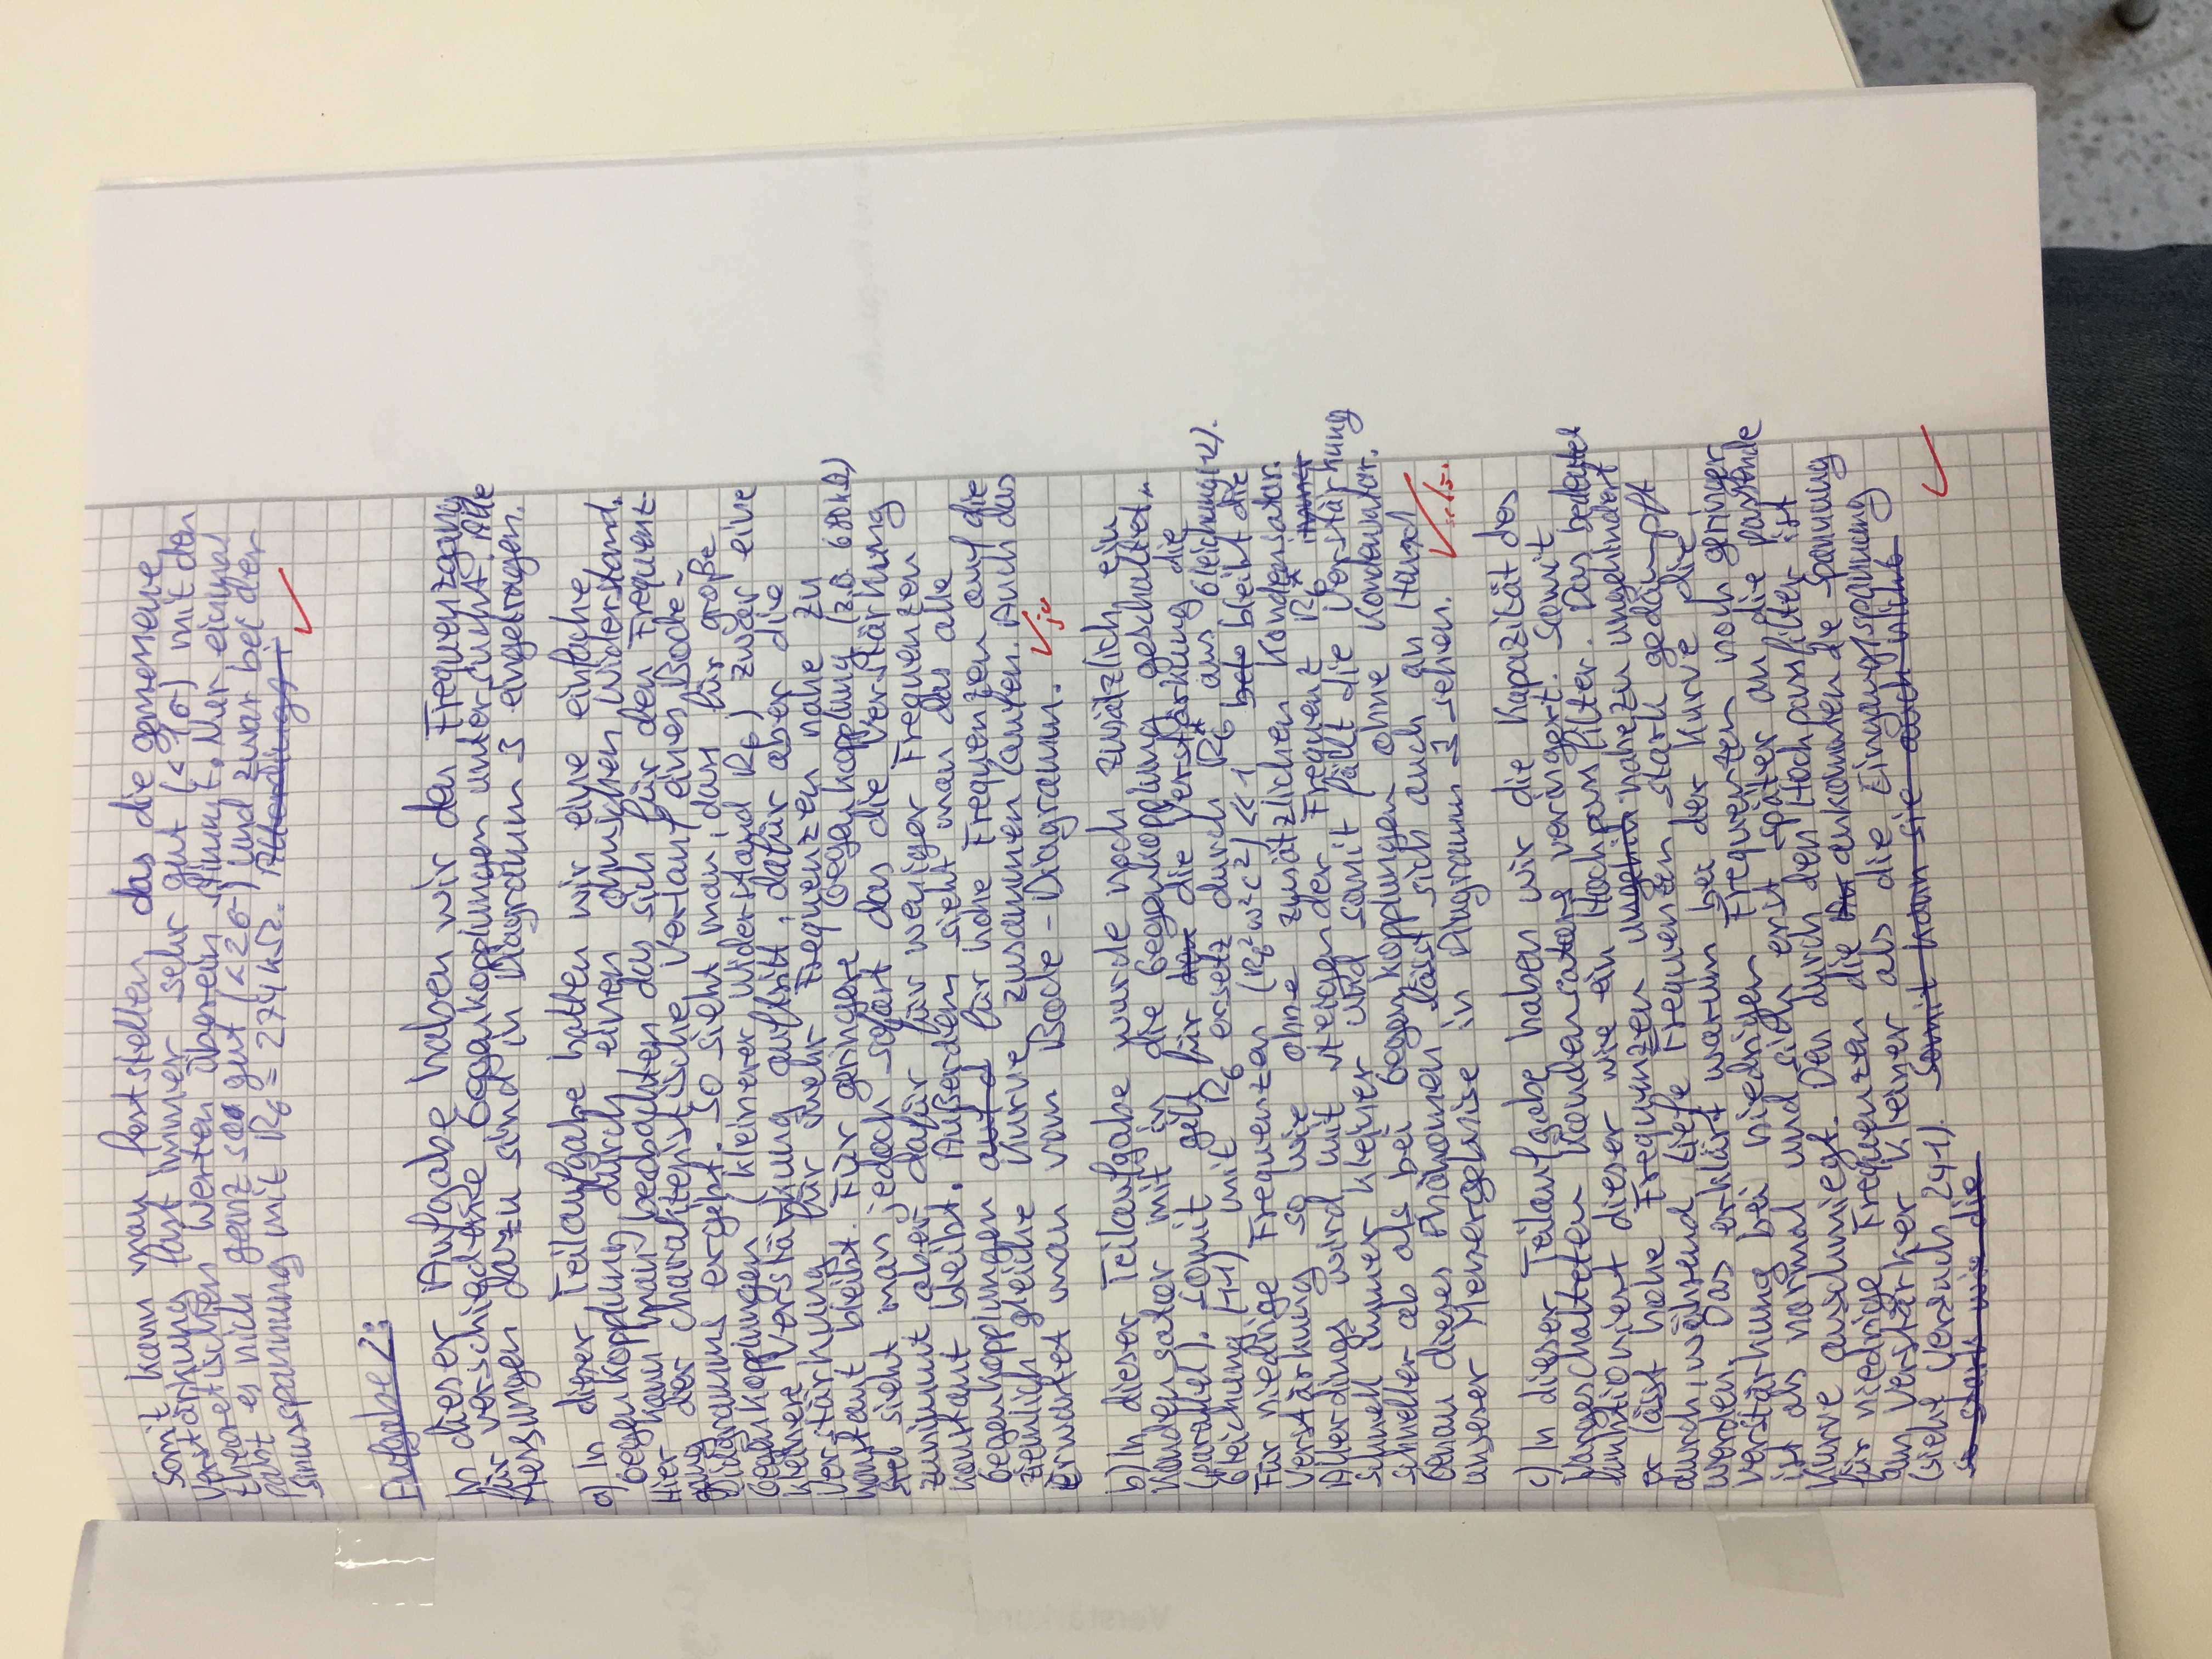 Somit kann man feststellen, das die gemessene
Verstärkung fast immer sehr gut (<1σ) mit den
theoretischen Werten überein stimmt. Nur einmal
past es nich ganz so gut (<2σ) und zwar bei der
sinusspannung mit R6 = 274 kΩ. Allerdings i
Aufgabe 2:
In dieser Aufgabe haben wir den Frequenzgang
für verschiedene Gegenkopplungen untersucht. Alle
Messungen dazu sind in Diagramm 3 eingetragen.
a) In dieser Teilaufgabe hatten wir eine einfache
Gegenkopplung durch einen ohmschen Widerstand.
Hier kann man beobachten das sich für den Frequenz-
gang der charakteristische Verlauf eines Bode-
Diagramms ergibt. So sieht man, dass für große
Gegenkopplungen (kleinerer Widerstand R6) zwar eine
kleinere Verstärkung auftritt, dafür aber die
Verstärkung für mehr Frequenzen nahe zu
konstant bleibt. Für geringere Gegenkopplung (z.B. 680kΩ)
sieht man jedoch sofort das die Verstärkung
zunimmt aber dafür für weniger Frequenzen
konstant bleibt. Außerdem sieht man das alle
Gegenkopplungen auf d für hohe Frequenzen auf die
ziemlich gleiche Kurve zusammen laufen. Auch das
erwartet man vom Bode-Diagramm. ✓ ja
b) In dieser Teilaufgabe wurde noch zusätzlich ein
Kondensator mit in die Gegenkopplung geschaltet.
(parallel). Somit gilt für die Verstärkung die
Gleichung (11) mit R6 ersetz durch R6* aus Gleichung(12).
Für niedrige Frequenzen (R6²ω²C²) << 1 bleibt die
Verstärkung so wie ohne zusätzlichen Kondensator.
Allerdings wird mit steigender Frequenz R6* immer
schnell immer kleiner und somit fällt die Verstärkung
schneller ab als bei Gegenkopplungen ohne Kondensator.
Genau dieses Phänomen lässt sich auch an Hand
unserer Messergebnise in Diagramm 3 sehen. ✓
c) In dieser Teilaufgabe haben wir die Kapazität des
Vorgeschalteten Kondensators veringert. Somit
funktioniert dieser wie ein Hochpassfilter. Das bedeutet
er lässt hohe Frequenzen ungehin nahezu ungehindert
durch, während tiefe Frequenzen stark gedämpft
werden. Das erklärt warum bei der Kurve die
Verstärkung bei niedrigen Frequenzen noch geringer
ist als normal und sich erst später an die passende
Kurve anschmiegt. Den durch den Hochpassfilter ist
für niedrige Frequenzen die ankommende Spannung
am Verstärker kleiner als die Eingangsspannung
(siehe Versuch 241). Somit kann sie auch nicht
so stark wie die